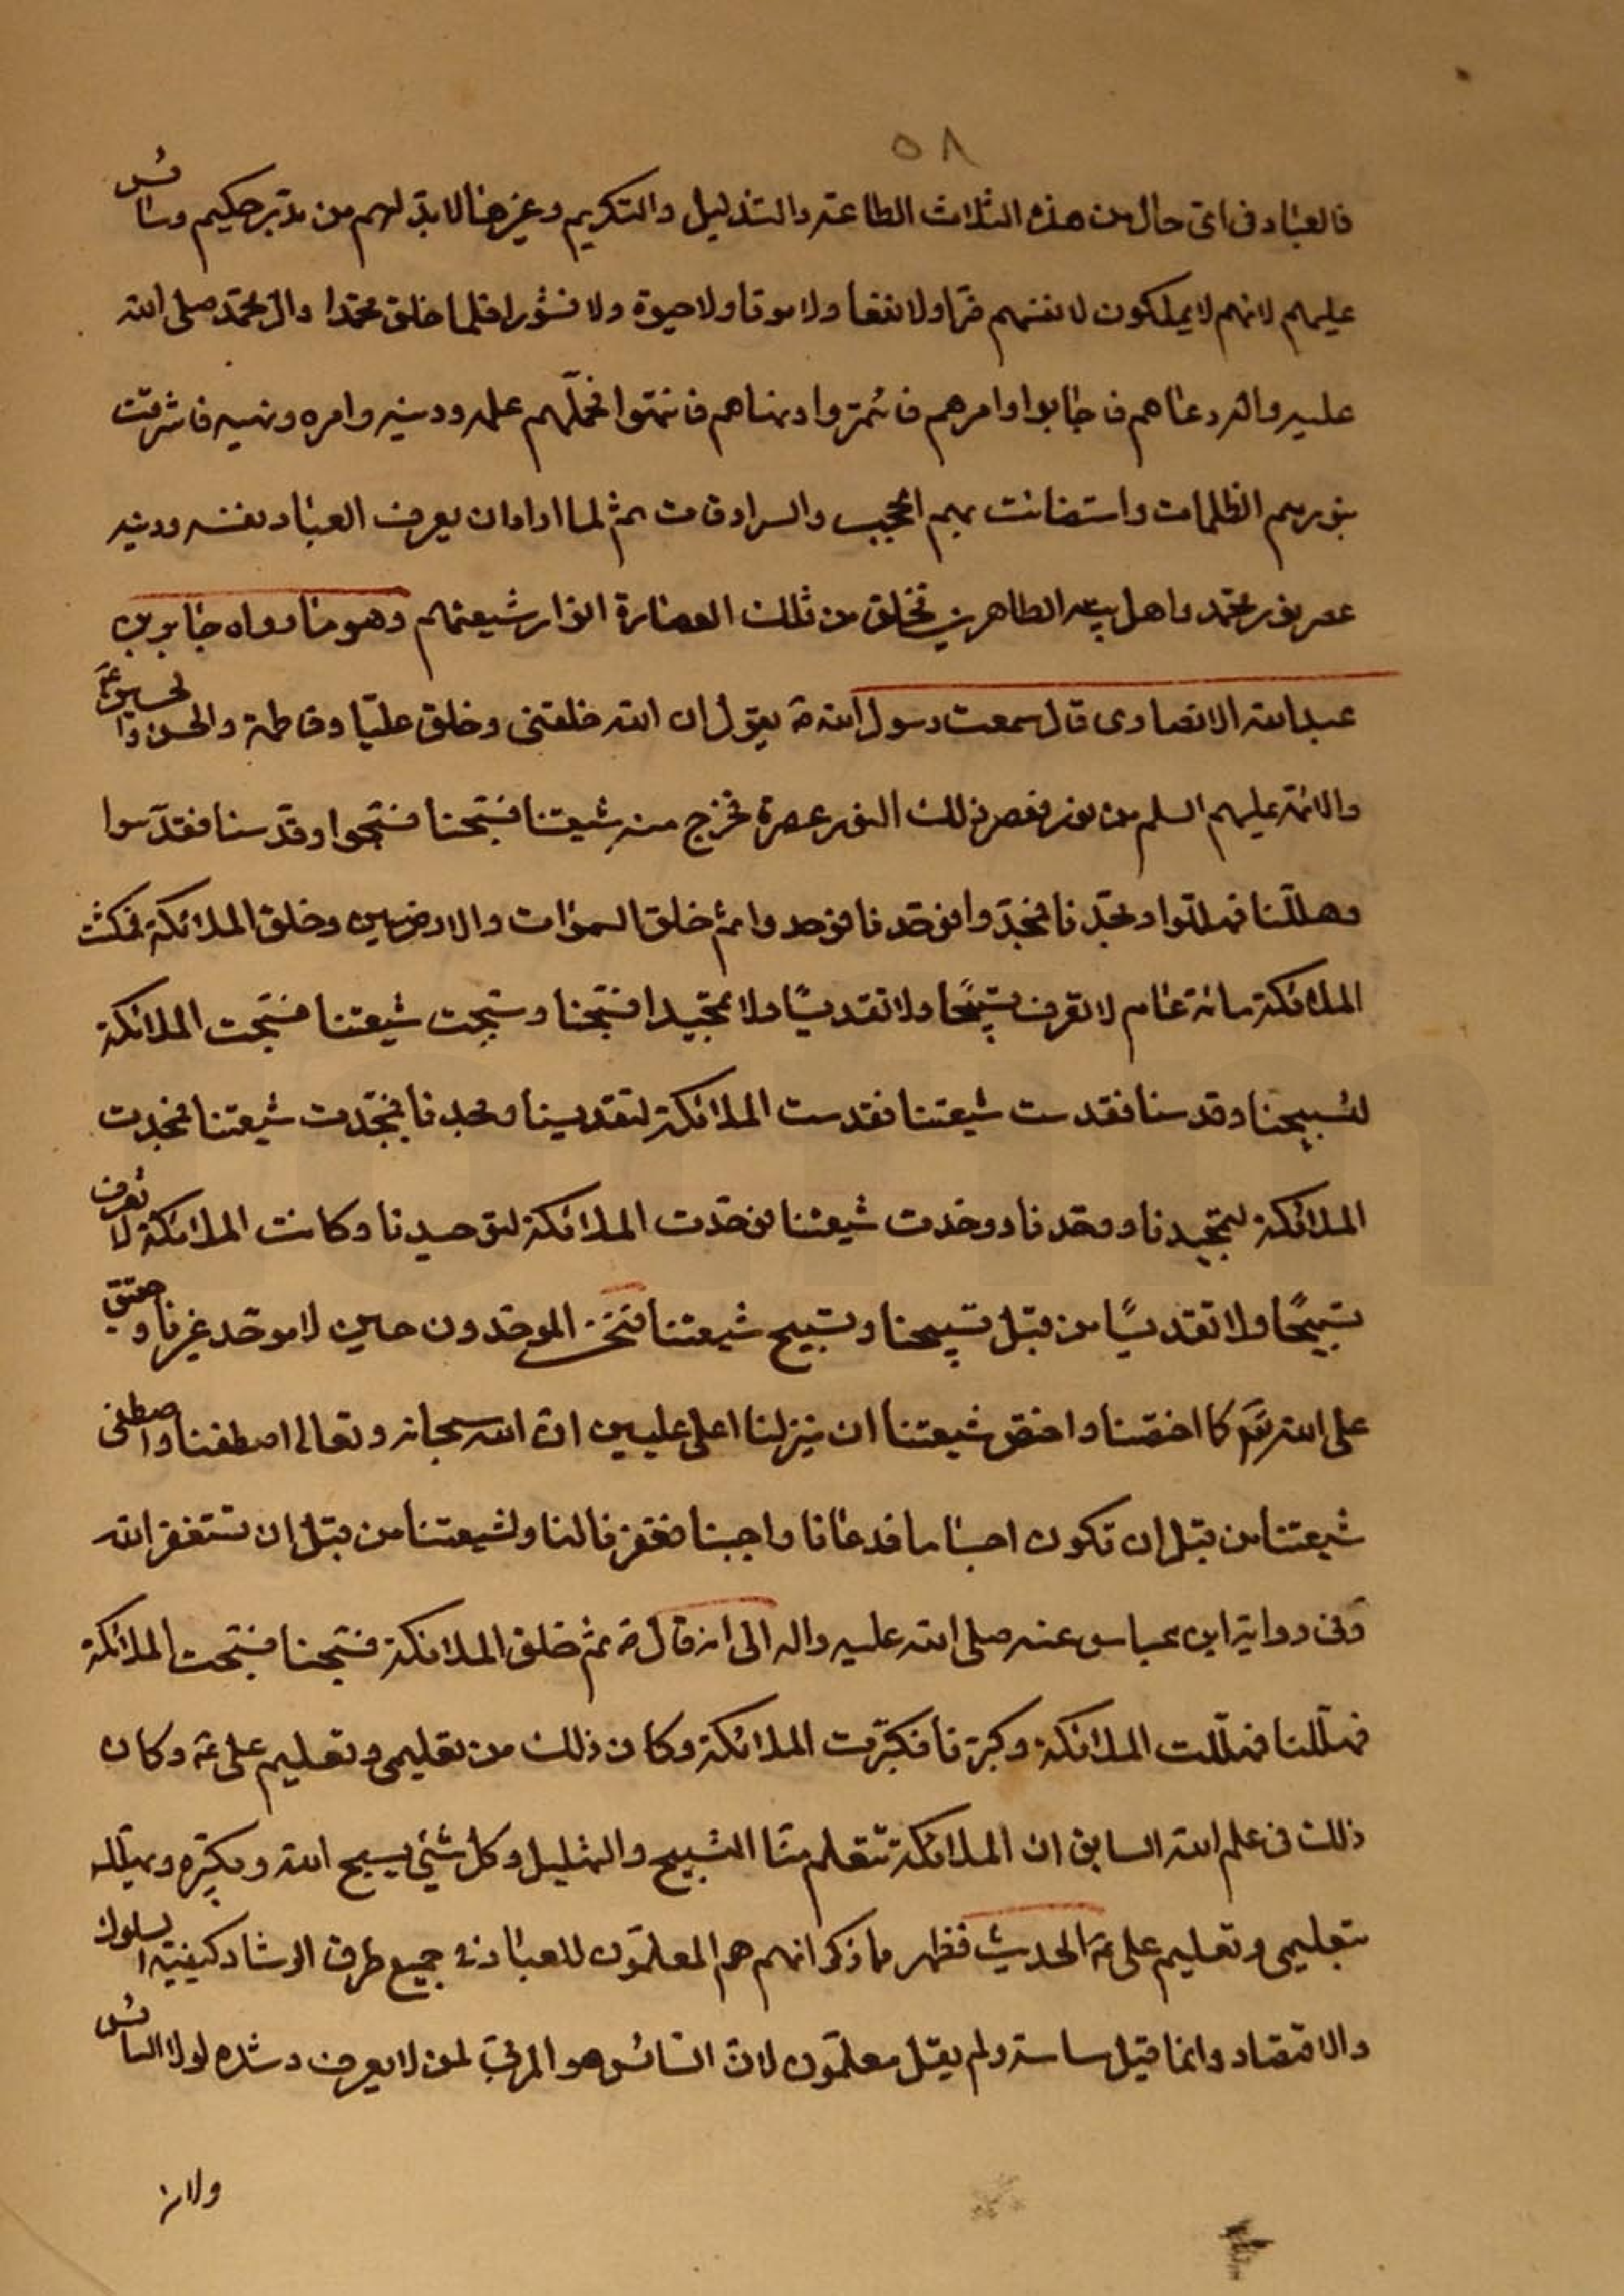 ٥٨
فالعباد فى اى حال من هذه الثلاث الطاعة والتذليل والتكريم وغيرها لابد لهم من مدبر حكيم وسائس
عليهم لانهم لا يملكون لانفسهم ضرا ولا نفعا ولا موتا ولا حيوة ولا نشورا فلما خلق محمدا وال محمد صلى الله
عليه واله دعاهم فاجابوا وامرهم فائتمروا ونهاهم فانتهوا فحملهم علمه ودينه وامره ونهيه فاشرقت
بنورهم الظلمات واستضائت بهم الحجب والسرادقات ثم لما اراد ان يعرف العباد نفسه ودينه
عصر نور محمد واهل بيته الطاهرين فخلق من تلك العصارة انوار شيعتهم وهو ما رواه جابر بن
عبد الله الانصارى قال سمعت رسول الله ص يقول ان الله خلقنى وخلق عليا وفاطمة والحسن والحسين ع
والائمة عليهم السلم من نور فعصر ذلك النور عصرة فخرج منه شيعتنا فسبحنا فسبحوا وقدسنا فقدسوا
وهللنا فهللوا ومجدنا فمجدوا ووحدنا فوحدوا ثم خلق السموات والارضين وخلق الملائكة فمكثت
الملائكة مائة عام لا تعرف تسبيحا ولا تقديسا ولا تمجيدا فسبحنا وسبحت شيعتنا فسبحت الملائكة
لتسبيحنا وقدسنا فقدست شيعتنا فقدست الملائكة لتقديسنا ومجدنا فمجدت شيعتنا فمجدت
الملائكة لتمجيدنا ووحدنا ووحدت شيعتنا فوحدت الملائكة لتوحيدنا وكانت الملائكة لا تعرف
تسبيحا ولا تقديسا من قبل تسبيحنا وتسبيح شيعتنا فنحن الموحدون حين لا موحد غيرنا وحقيق
على الله تع كما اختصنا واختص شيعتنا ان ينزلنا اعلى عليين ان الله سبحانه وتعالى اصطفنا واصطفى
شيعتنا من قبل ان تكون اجساما فدعانا واجبنا فغفر لنا ولشيعتنا من قبل ان نستغفر الله
وفى رواية ابن عباس عنه صلى الله عليه واله الى ان قال ص ثم خلق الملائكة فسبحنا فسبحت الملائكة
فهللنا فهللت الملائكة وكبرنا فكبرت الملائكة وكان ذلك من تعليمى وتعليم على ع وكان
ذلك فى علم الله السابق ان الملائكة تتعلم منا التسبيح والتهليل وكل شئ يسبح الله ويكبره ويهلله
بتعليمى وتعليم على ع الحديث فظهر مما ذكر انهم هم المعلمون للعباد فى جميع طرق الرشاد كيفية السلوك
والاقتصاد وانما قيل ساسة ولم يقل معلمون لان السائس هو المربى لمن لا يعرف رشده لولا السائس
ولانه